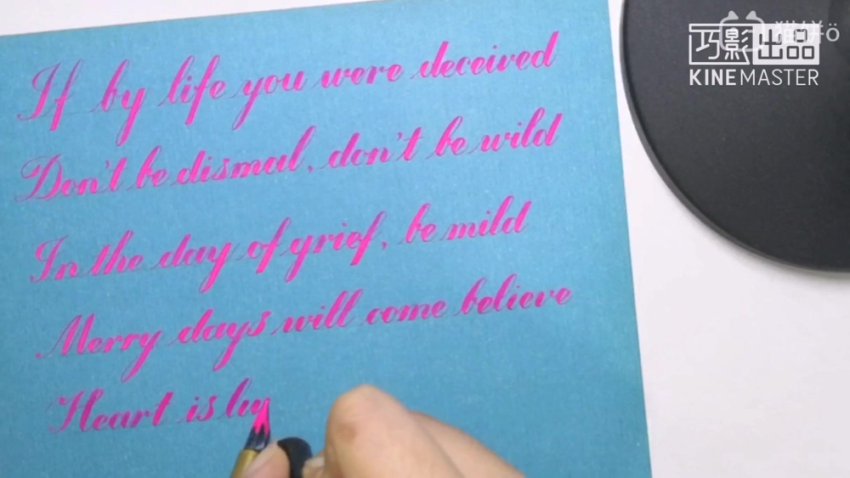 巧影出品
KINEMASTER
If by life you were deceived
Don't be dismal, don't be wild
In the day of grief, be mild
Merry days will come believe
Heart is